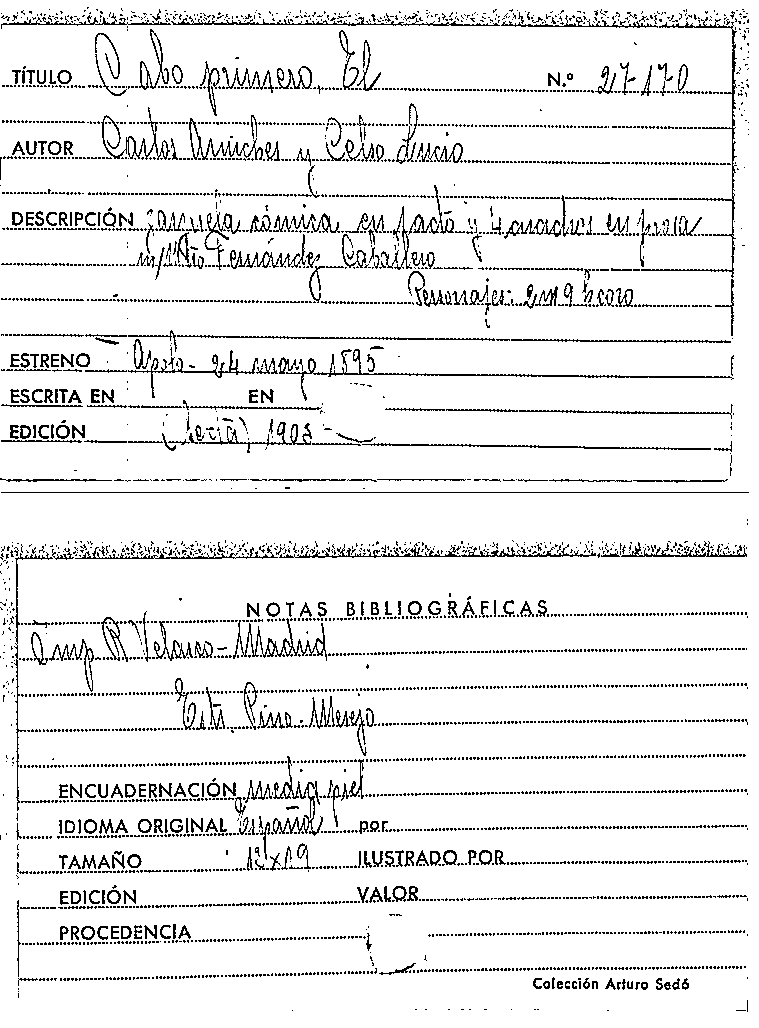 TÍTULO Cabo primero, El N.º 27-170
AUTOR Carlos Arniches y Celso Lucio
DESCRIPCIÓN zarzuela cómica en 1 acto y 4 cuadros en prosa
m/ Mtro Fernández Caballero
Personajes: 2 m 9 h coro
ESTRENO Apolo - 24 mayo 1895
ESCRITA EN EN
EDICIÓN (sexta) 1905 -
NOTAS BIBLIOGRÁFICAS
Imp R Velasco - Madrid
Estr. Pino - Mesejo
ENCUADERNACIÓN media piel
IDIOMA ORIGINAL Español por
TAMAÑO 13x19 ILUSTRADO POR
EDICIÓN VALOR
PROCEDENCIA
Colección Arturo Sedó